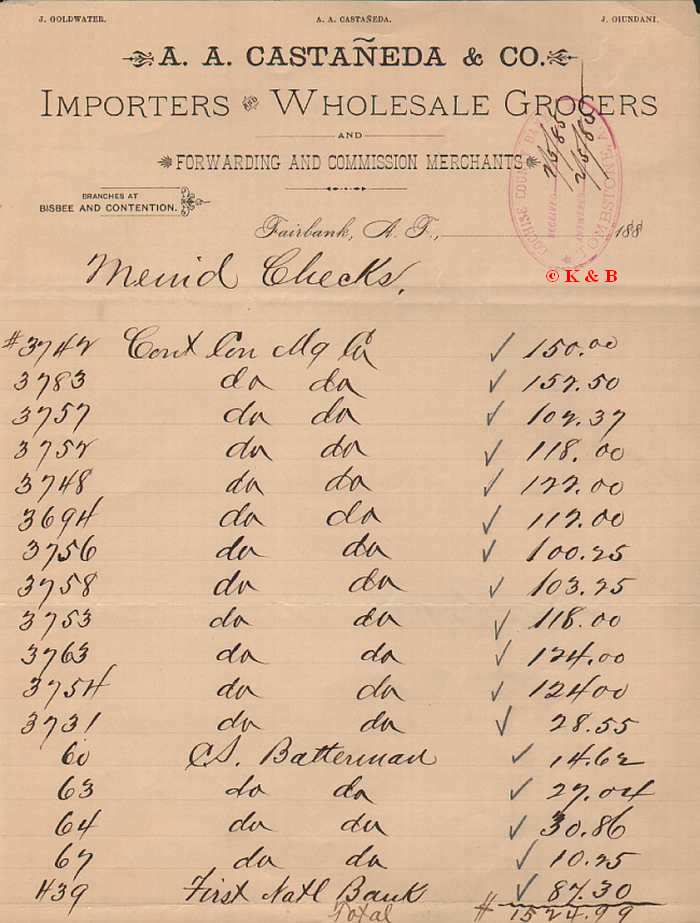 J. GOLDWATER. A. A. CASTAÑEDA. J. GIUNDANI.
A. A. CASTAÑEDA & CO.
IMPORTERS AND WHOLESALE GROCERS
AND
FORWARDING AND COMMISSION MERCHANTS
BRANCHES AT
BISBEE AND CONTENTION.
COCHISE COUNTY BANK
RECEIVED
TOMBSTONE,
2/5/85
2/5/85
Fairbank, A. T., 188
© K & B
Checks.
#3742 Cont Con Mg Co ✓ 150.00
3783 do do ✓ 152.50
3757 do do ✓ 102.37
3752 do do ✓ 118.00
3748 do do ✓ 122.00
3694 do do ✓ 112.00
3756 do do ✓ 100.25
3758 do do ✓ 103.25
3753 do do ✓ 118.00
3763 do do ✓ 124.00
3754 do do ✓ 124.00
3731 do do ✓ 28.55
60 C.S. Batterman ✓ 14.62
63 do do ✓ 27.04
64 do do ✓ 30.86
67 do do ✓ 10.25
439 First Natl Bank ✓ 87.30
Total # 1524.99